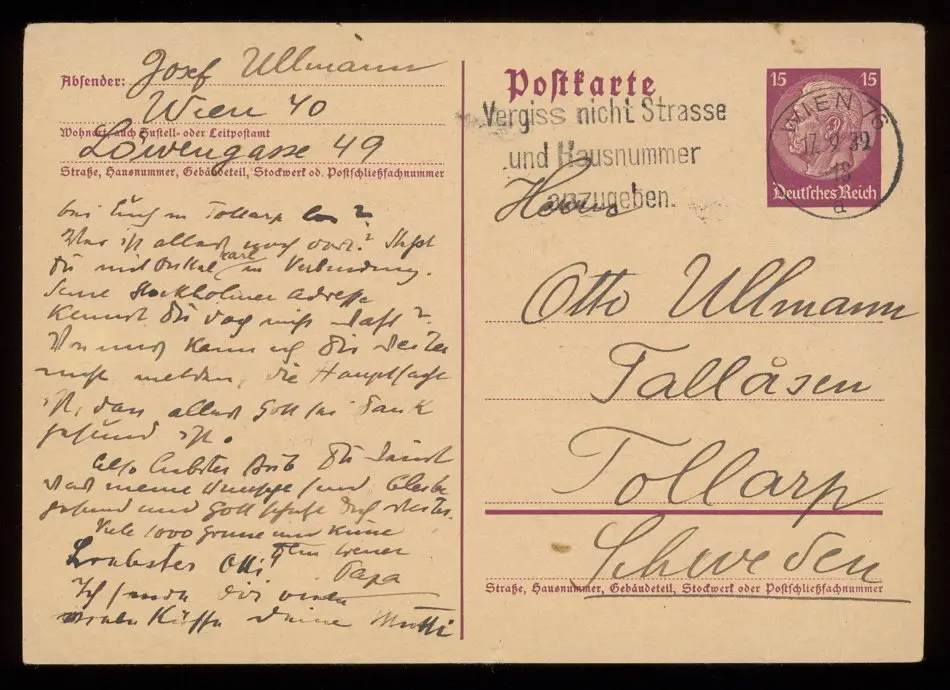 Absender: Josef Ullmann
Wien 40
Wohnort, auch Zustell- oder Leitpostamt
Löwengasse 49
Straße, Hausnummer, Gebäudeteil, Stockwerk od. Postschließfachnummer
bei Euch in Tollarp los?
Was ist alles noch dort? Stehst
Du mit Onkel Karl in Verbindung.
Seine Stockholmer Adresse
Kennst Du doch nicht wahr?
Von uns kann ich Dir weiter
nicht melden, die Hauptsache
ist, dass alles Gott sei Dank
gesund ist.
Also liebster Bub Du
meine Wünsche sind, bleibe
gesund und Gott schütze Dich weiter.
Viele 1000 Grüsse und Küsse
Dein treuer
Papa
Liebster Otti
Ich sende Dir vielen
vielen Küsse Deine Mutti
Postkarte
Vergiss nicht Strasse
und Hausnummer
anzugeben.
15 15
WIEN 76
17. 9. 39
18
d
Deutsches Reich
Herrn
Otto Ullmann
Tallåsen
Tollarp
Schweden
Straße, Hausnummer, Gebäudeteil, Stockwerk oder Postschließfachnummer